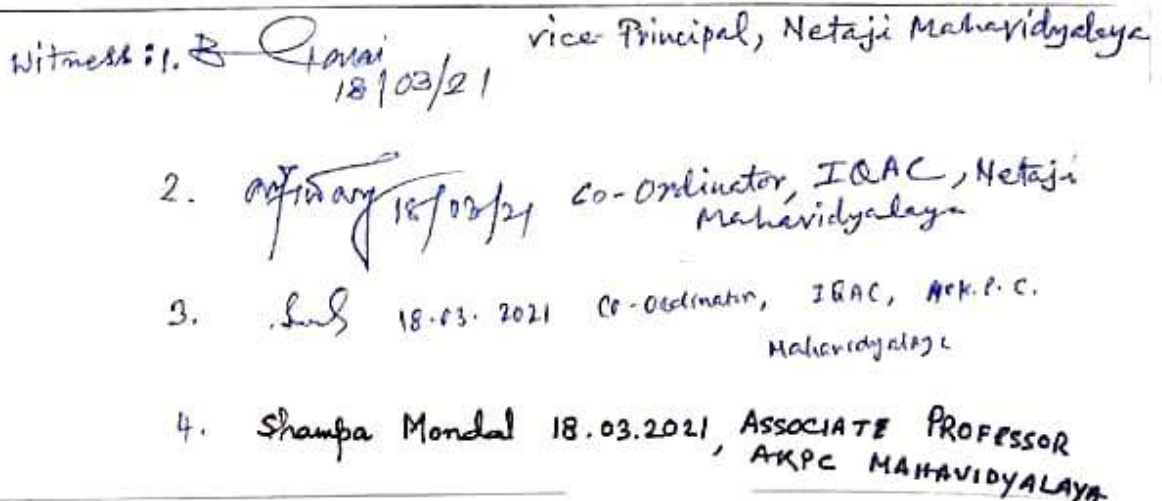 Witness: 1. B Garai vice-Principal, Netaji Mahavidyalaya
18/03/21
2. 18/03/21 Co-Ordinator, IQAC, Netaji
Mahavidyalaya
3. 18.03.2021 Co-Ordinator, IQAC, A.K.P.C.
Mahavidyalaya
4. Shampa Mondal 18.03.2021, ASSOCIATE PROFESSOR
AKPC MAHAVIDYALAYA